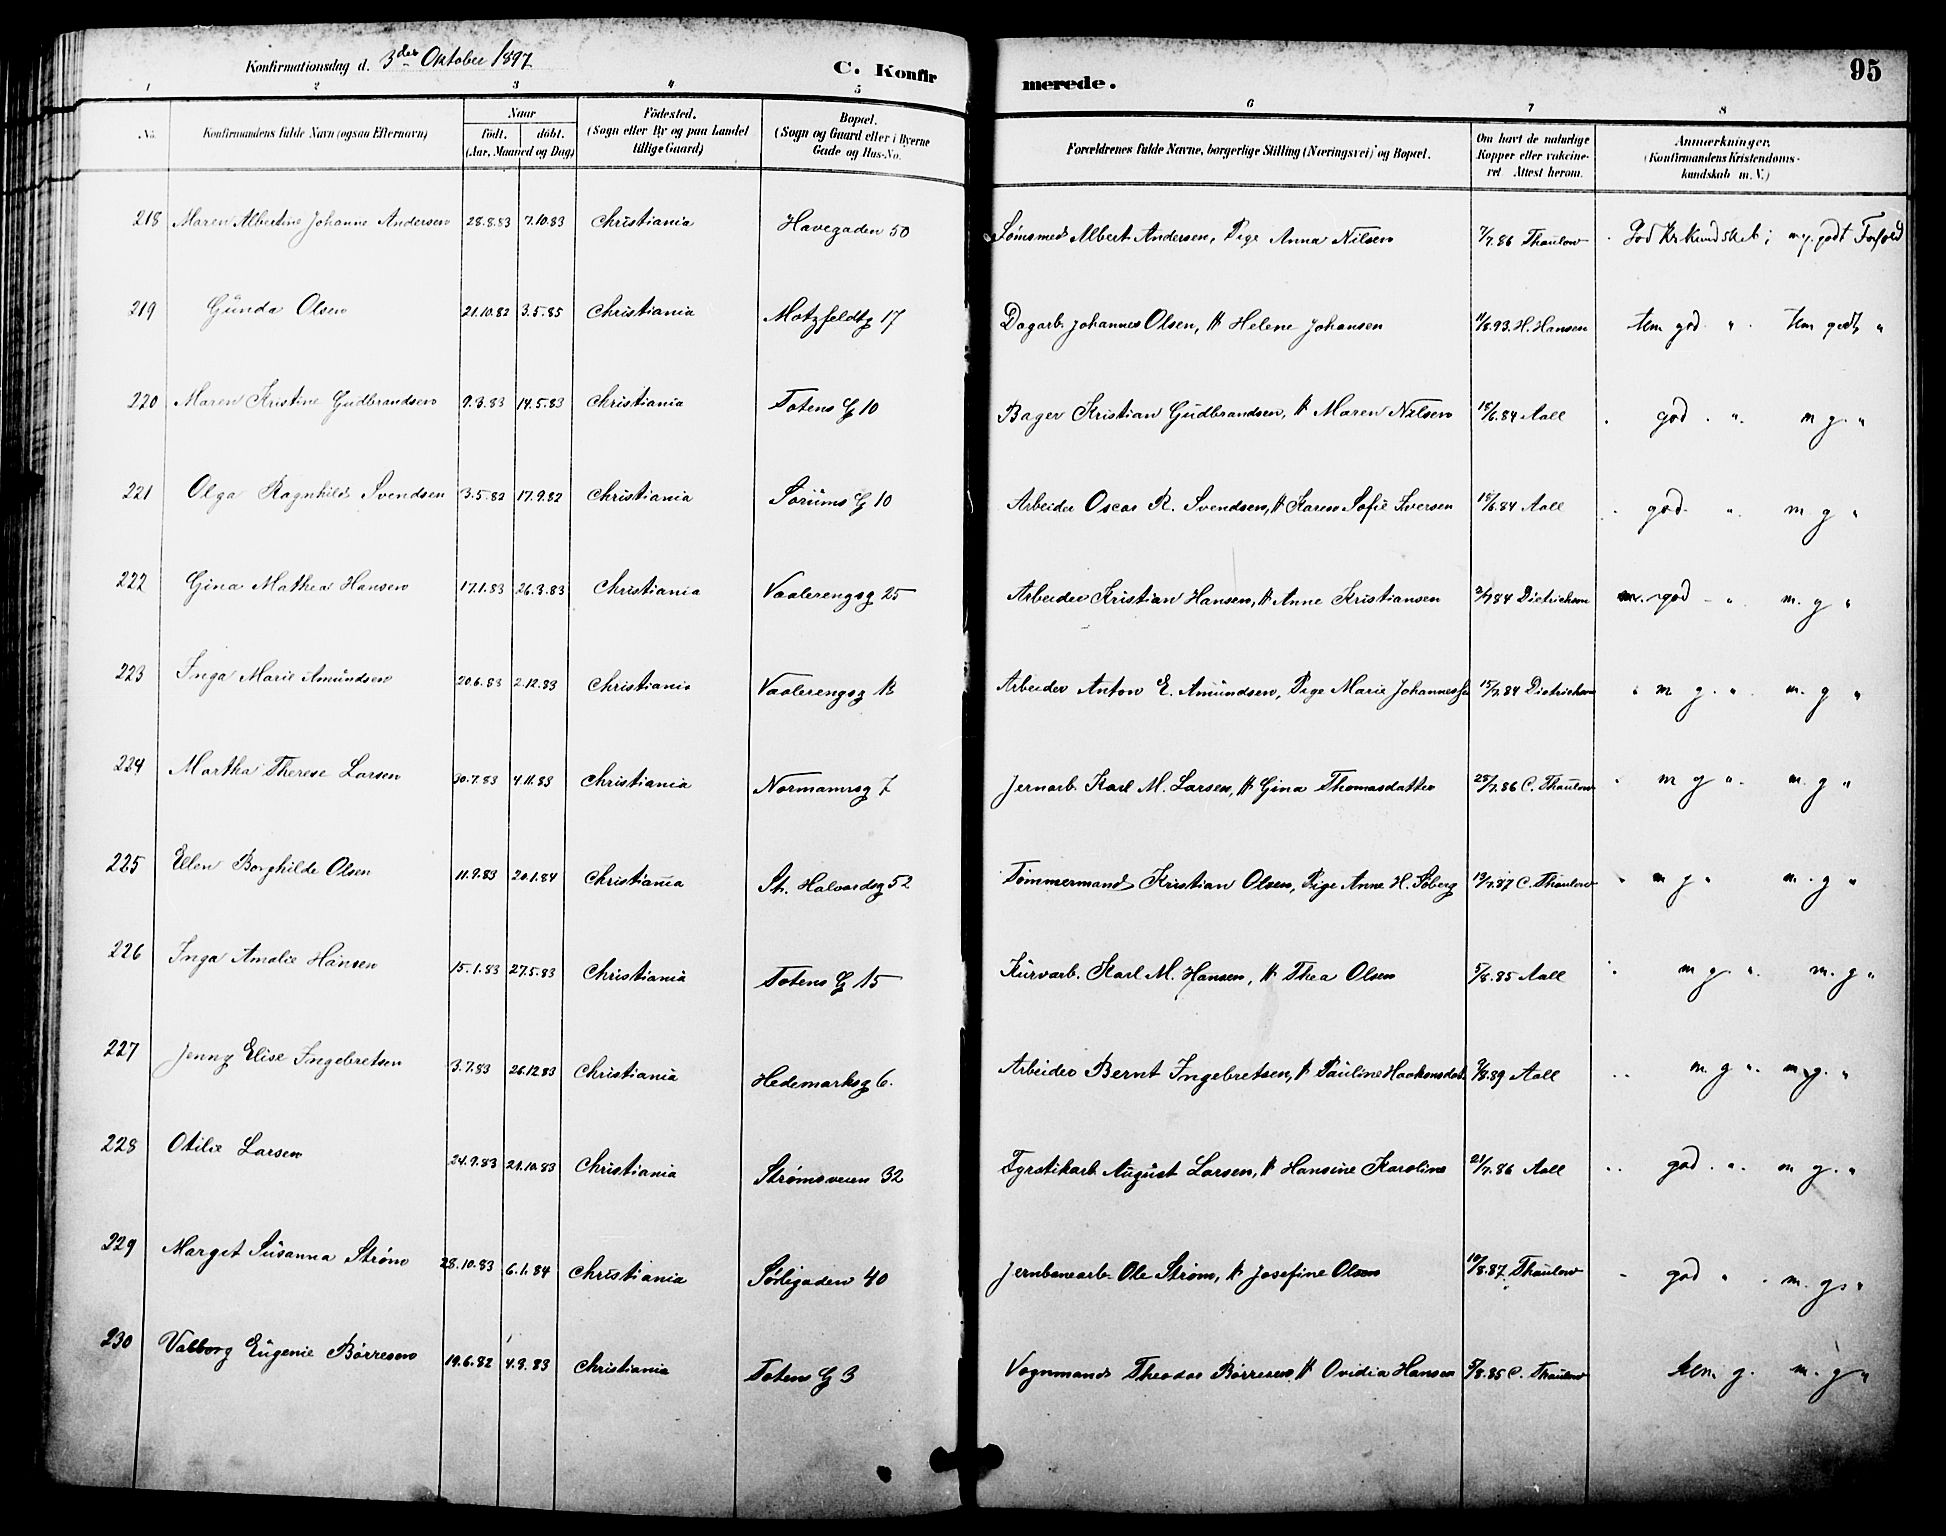 Konfirmationsdag d. 3die Oktober 1897
C. Konfirmerede.
95
1 2 3 4 5 6 7 8
No. Konfirmandens fulde Navn (ogsaa Efternavn) Naar födt. döbt. (Aar, Maaned og Dag) Födested. (Sogn eller By og paa Landet tillige Gaard) Bopæl. (Sogn og Gaard eller i Byerne Gade og Hus-No. Forældrenes fulde Navne, borgerlige Stilling (Næringsvei) og Bopæl. Om havt de naturlige Kopper eller vakcineret Attest herom. Anmærkninger. (Konfirmandens Kristendomskundskab m. V.)
218 Maren Albertine Johanne Andersen 28.8.83 7.10.83 Christiania Havegaden 50 Sømsmed Albert Andersen, Pige Anna Nilsen 7/7.86 Thaulow God Kr. Kundskab; m. godt Forhold
219 Gunda Olsen 21.10.82 3.5.85 Christiania Motzfeldtg 17 Dagarb. Johannes Olsen, H. Helene Johansen 11/8.93. H. Hansen tem god " tem godt "
220 Maren Kristine Gudbrandsen 9.3.83 14.5.83 Christiania Totens G 10 Bager Kristian Gudbrandsen, H. Maren Nilsen 18/6.84 Aall god " m g. "
221 Olga Ragnhild Svendsen 3.5.82 17.9.82 Christiania Sorums G 10 Arbeider Oscar R. Svendsen, H. Karen Sofie Iversen 18/6.84 Aall god. " m g "
222 Gina Mathea Hansen 17.1.83 26.3.83 Christiania Vaalerengsg 25 Arbeider Kristian Hansen, H. Anne Kristiansen 2/7 84 Dietrichson god " m. g "
223 Inga Marie Amundsen 20.6.83 2.12.83 Christiania Vaalerengsg Arbeider Anton E. Amundsen, Pige Marie 15/7.84 Dietrichson m g. " m. g "
224 Martha Therese Larsen 30.7.83 4.11.83 Christiania Normannsg 7 Jernarb. Karl M. Larsen, H. Gina Thomasdatter 28/7.86 C. Thaulow m g " m. g "
225 Ellen Borghilde Olsen 11.9.83 20.1.84 Christiania St. Halvardsg 52 Tømmermand Kristian Olsen, Pige Anne H. Soberg 19/7.87 C. Thaulow m g " m. g "
226 Inga Amalie Hansen 15.1.83 27.5.83 Christiania Totens G 15 Kurvarb. Karl M. Hansen, H. Thea Olsen 5/8.85 Aall m g " m. g "
227 Jenny Elise Ingebretsen 3.7.83 26.12.83 Christiania Hedemarksg 6. Arbeider Bernt Ingebretsen, H. Pauline Haakonsdat. 9/8.89 Aall m. g " m. g. "
228 Otilie Larsen 24.9.83 21.10.83 Christiania Strømsveien 32 Fyrstikarb. August Larsen, H. Hansine Karoline 21/7.86 Aall god " m g. "
229 Marget Susanna Strøm 28.10.83 6.1.84 Christiania Sørligaden 40 Jernbanearb. Ole Strøm, H. Josefine Olsen 10/8.87 Thaulow god " m. g. "
230 Valborg Eugenie Børresen 19.6.82 4.3.83 Christiania Totens G 3 Vognmand Theodor Børresen, H. Ovidia Hansen 5/8.85 C. Thaulow tem. g. m. g "